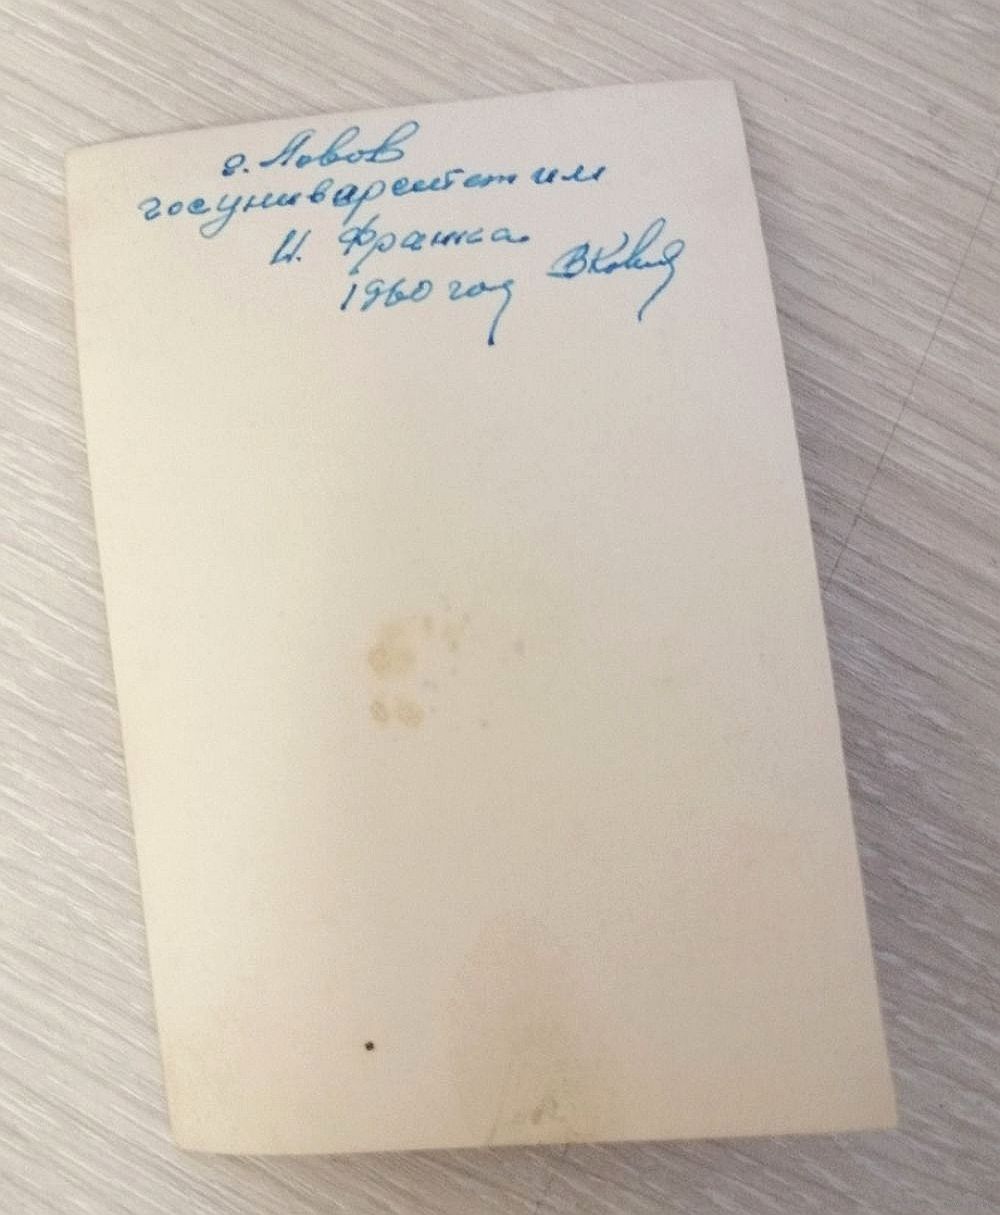 г. Львов
госуниверситет им
И. Франка
1960 год